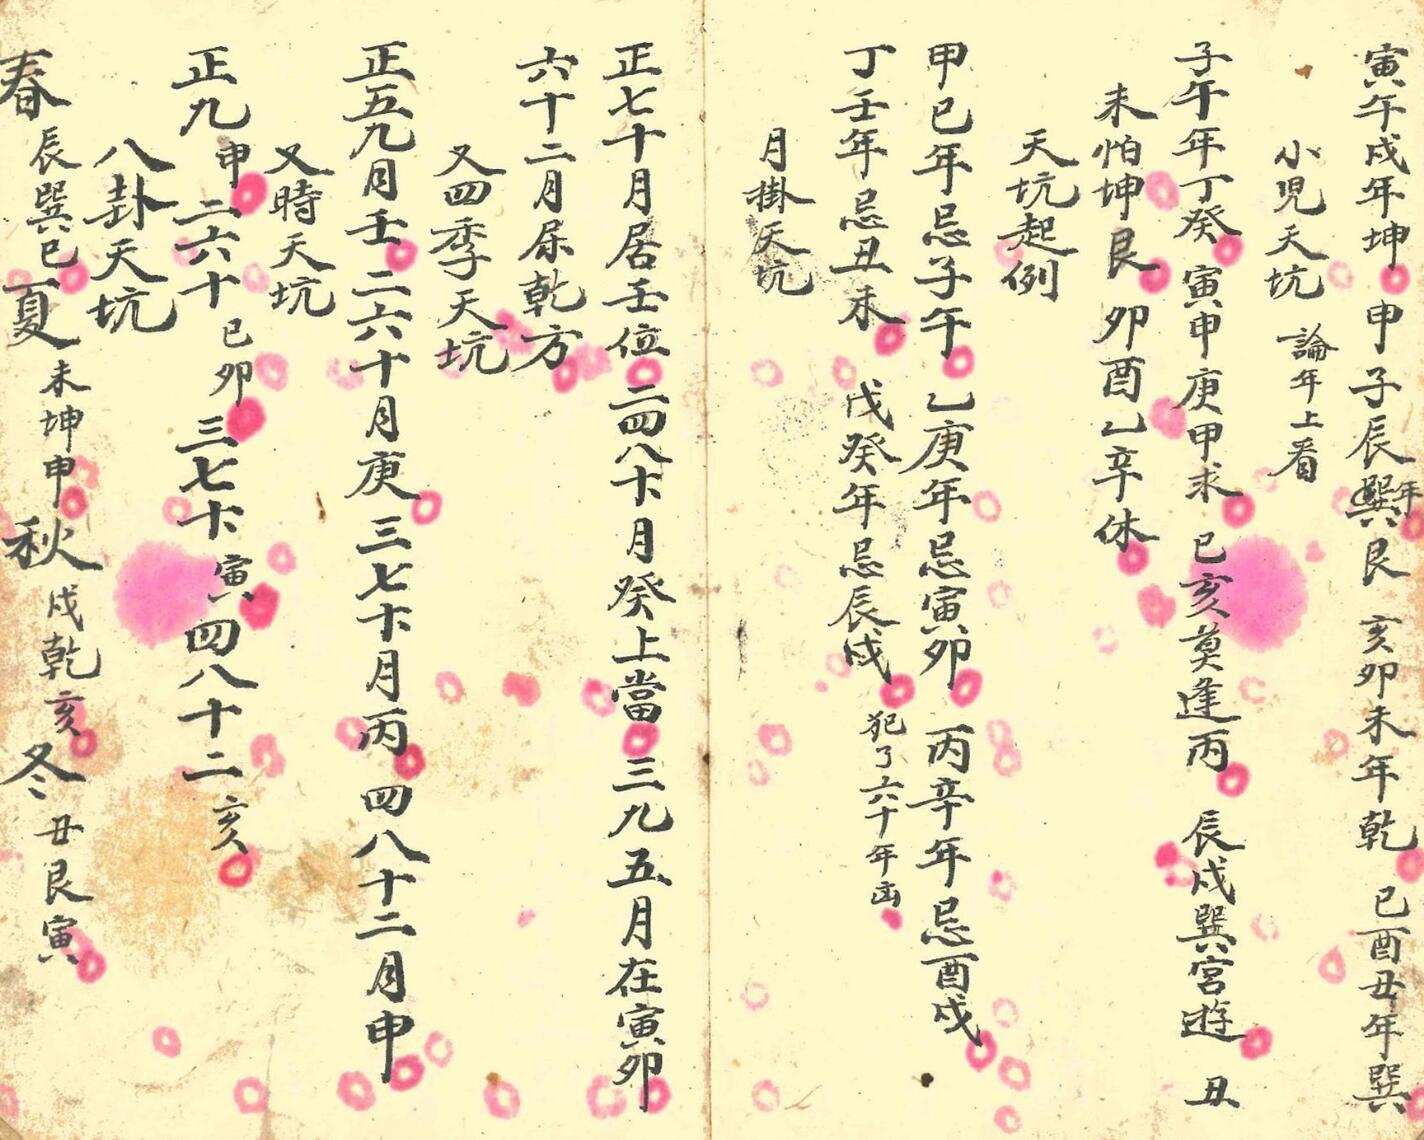 寅午戌年坤 申子辰年巽艮 亥卯未年乾 巳酉丑年巽
小児天坑 論年上看
子午年丁癸 寅申庚甲求 巳亥莫逢丙 辰戌巽宮遊 丑
未怕坤艮 卯酉乙辛休
天坑起例
甲巳年忌子午 乙庚年忌寅卯 丙辛年忌酉戌
丁壬年忌丑未 戊癸年忌辰戌 犯了六十年凶
月掛天坑
正七十月居壬位 二四八十月癸上當 三九五月在寅卯
六十二月屎乾方
又四季天坑
正五九月壬 二六十月庚 三七十月丙 四八十二月申
又時天坑
正九申 二六十巳卯 三七十寅 四八十二亥
八卦天坑
春辰巽巳 夏未坤申 秋戌乾亥 冬丑艮寅